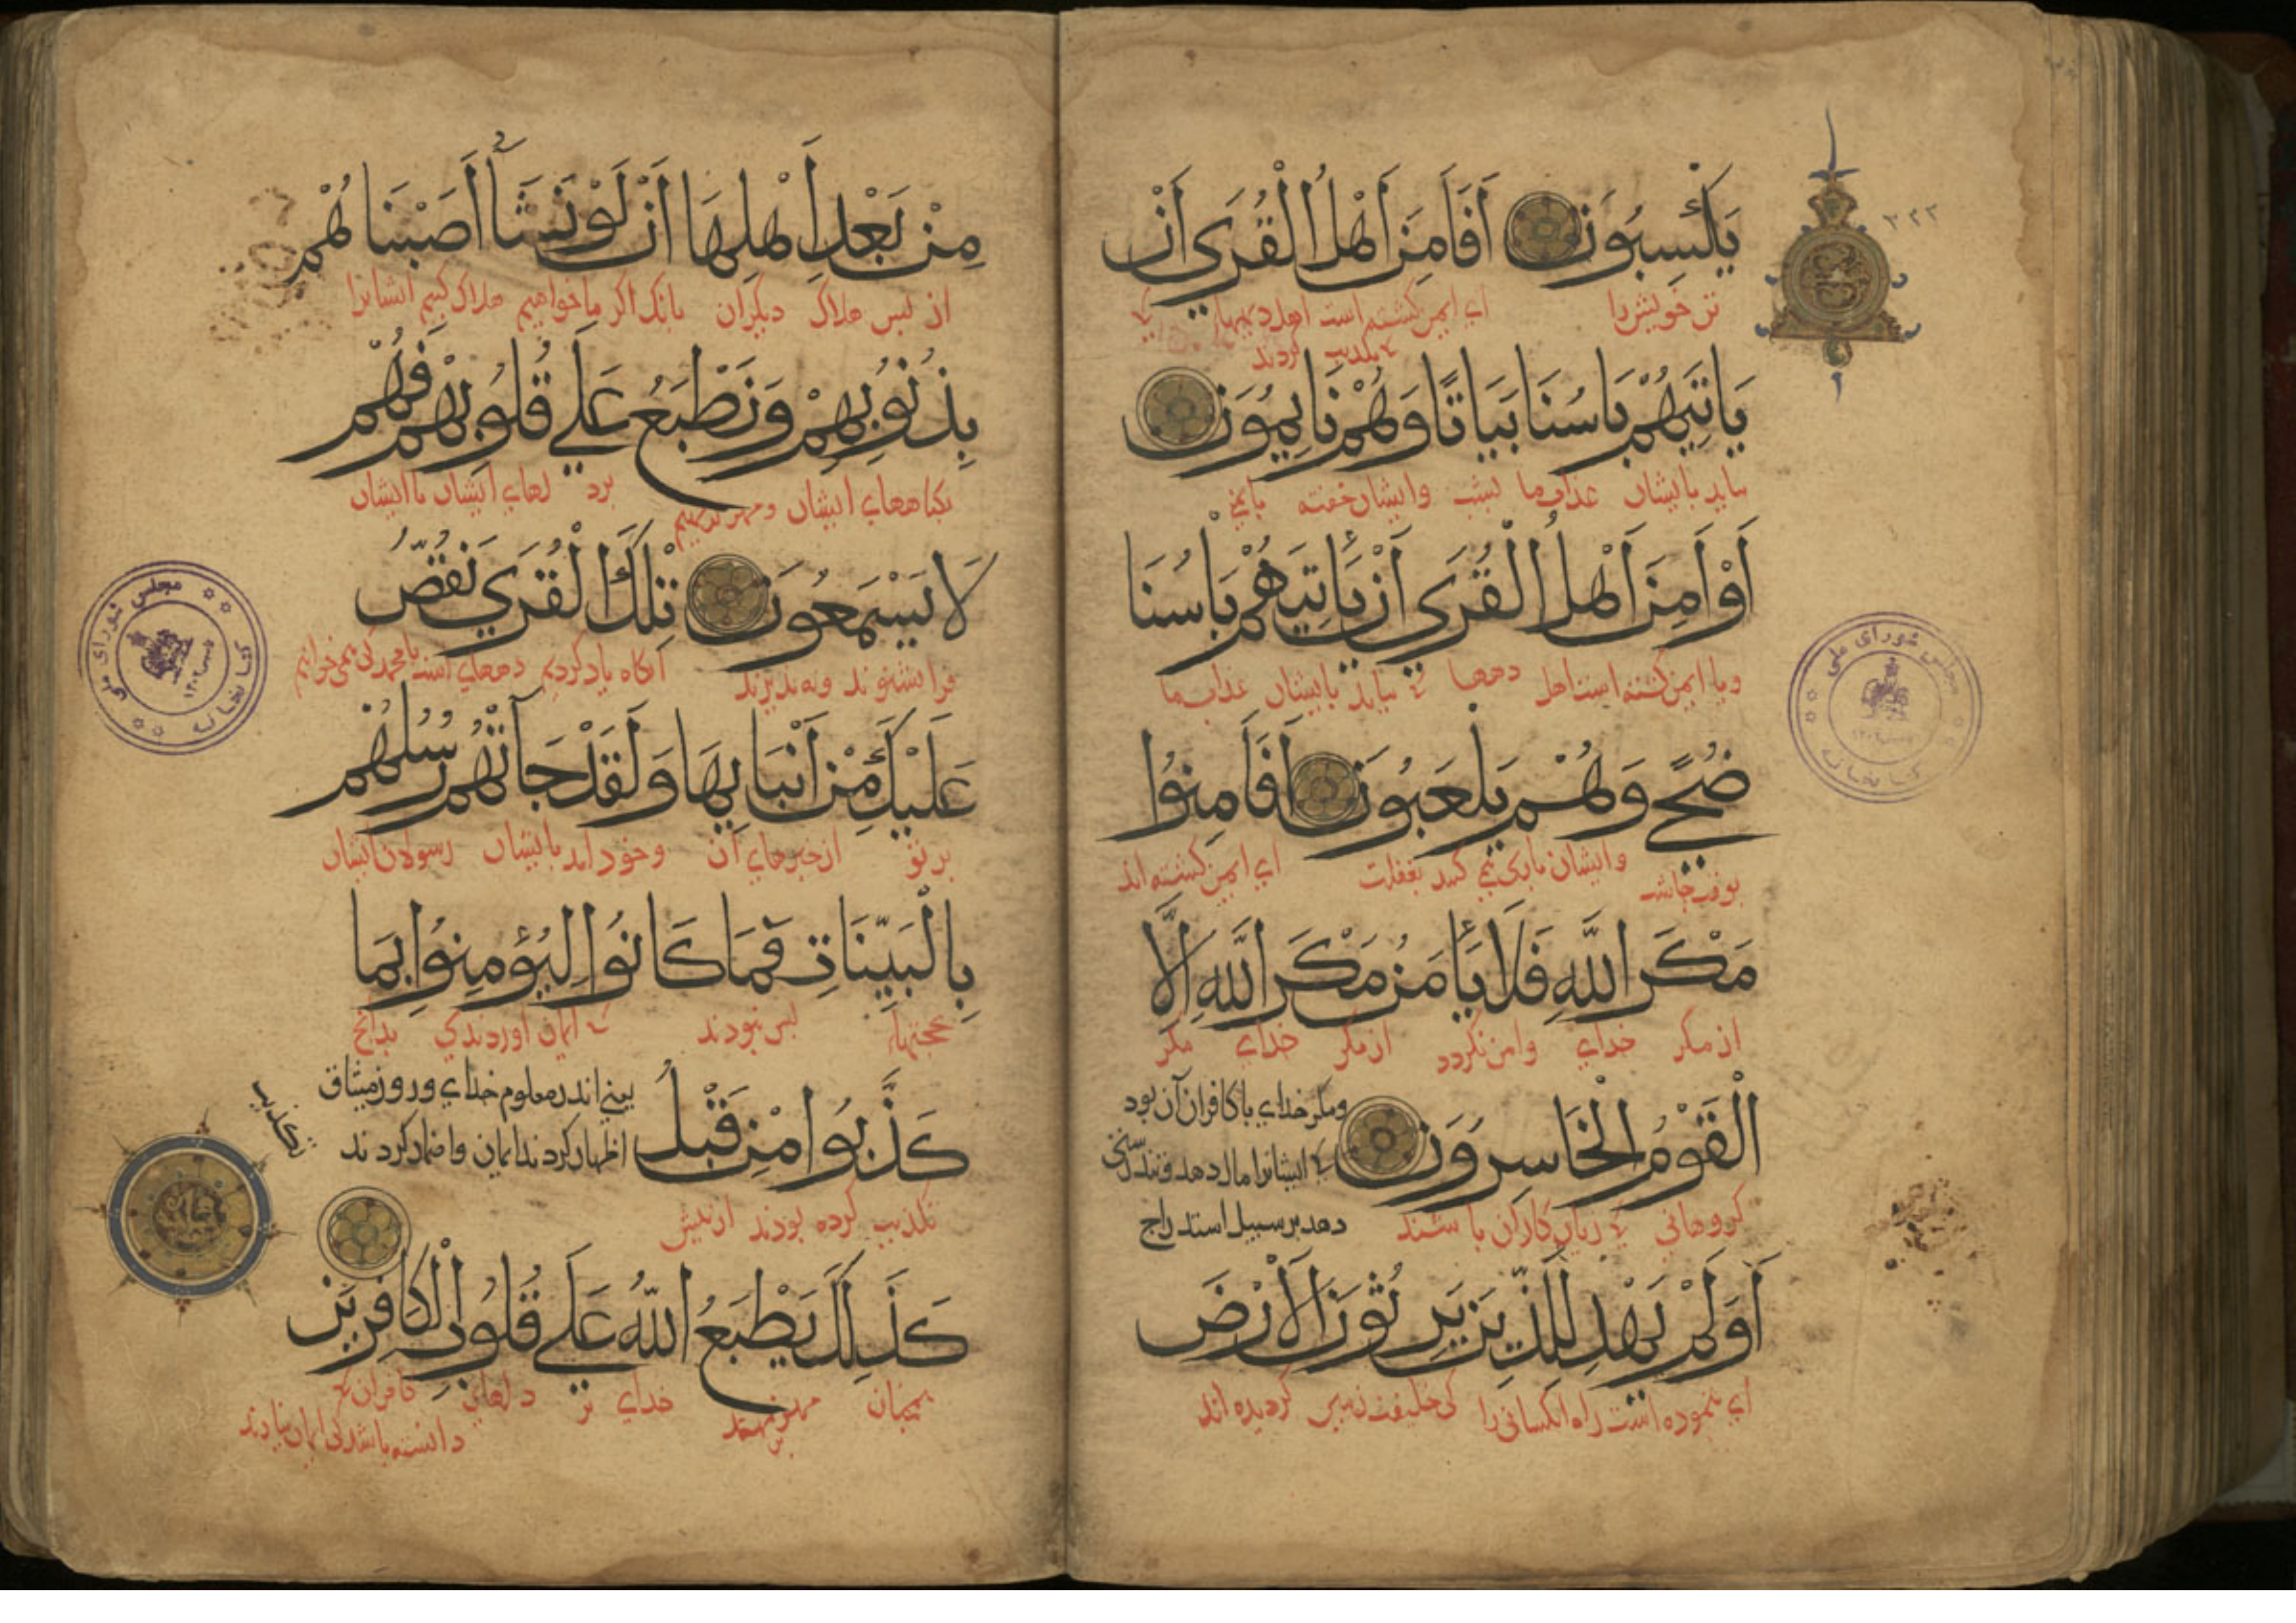 يَكْسِبُونَ أَفَأَمِنَ أَهْلُ الْقُرَى أَنْ
تن خویش را ای ایمن گشته است اهل دیهها
تکذیب کردند
يَاتِيَهُمْ بَاسُنَا بَيَاتًا وَهُمْ نَايِمُونَ
بیاید بایشان عذاب ما بشب وایشان خفته
أَوْ أَمِنَ أَهْلُ الْقُرَى أَنْ يَأْتِيَهُمْ بَأْسُنَا
ویا ایمن گشته است اهل دهها کی بیاید بایشان عذاب ما
ضُحًى وَهُمْ يَلْعَبُونَ أَفَأَمِنُوا
بوقت چاشت وایشان بازی می کنند بغفلت ای ایمن گشته اند
مَكْرَ اللَّهِ فَلَا يَأْمَنُ مَكْرَ اللَّهِ إِلَّا
از مکر خدای وامن نگردد از مکر خدای مگر
الْقَوْمُ الْخَاسِرُونَ
ومکر خدای با کافران آن بود
کی ایشانرا مال دهد
دهد بر سبیل استدراج
گروهانی کی زیان کاران باشند
أَوَلَمْ يَهْدِ لِلَّذِينَ يَرِثُونَ الْأَرْضَ
ای ننموده است راه آنکسانی را کی خلیفت زمین گردیده اند
۳۲۲
مجلس شورای ملی
کتابخانه
مِنْ بَعْدِ أَهْلِهَا أَنْ لَوْ نَشَآءُ أَصَبْنَاهُمْ
از پس هلاک دیگران بانک اگر ما خواهیم هلاک کنیم ایشانرا
بِذُنُوبِهِمْ وَنَطْبَعُ عَلَى قُلُوبِهِمْ فَهُمْ
بگناههای ایشان ومهر نهیم بر دلهای ایشان تا ایشان
لَا يَسْمَعُونَ تِلْكَ الْقُرَى نَقُصُّ
فرا نشنوند ونه پذیرند آنگاه یاد کردیم دههای است یا محمد کی می خوانیم
عَلَيْكَ مِنْ أَنْبَايِهَا وَلَقَدْ جَآتْهُمْ رُسُلُهُمْ
بر تو از خبرهای آن وخود آمد بایشان رسولان ایشان
بِالْبَيِّنَاتِ فَمَا كَانُوا لِيُؤْمِنُوا بِمَا
بحجتها پس نبودند کی ایمان آوردندی بدانچ
كَذَّبُوا مِنْ قَبْلُ
یعنی اندر معلوم خدای ور روز میثاق
اظهار کردند ایمان واضمار کردند
تکذیب
تکذیب کرده بودند از پیش
كَذَلِكَ يَطْبَعُ اللَّهُ عَلَى قُلُوبِ الْكَافِرِينَ
همچنان مهر نهد خدای بر دلهای کافران
دانسته باشد کی ایمان نیارند
مجلس شورای ملی
کتابخانه